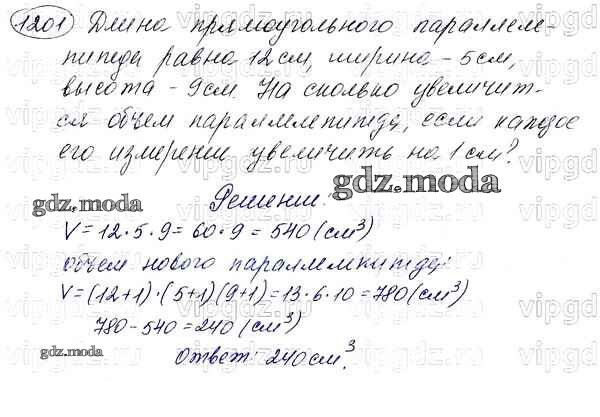 1201 Длина прямоугольного паралле-
пипеда равна 12 см, ширина - 5 см,
высота - 9 см. На сколько увеличит-
ся объем параллепипеда, если каждое
его измерение увеличить на 1 см?
gdz.moda
gdz.moda
Решение.
V = 12 · 5 · 9 = 60 · 9 = 540 (см³)
объем нового параллепипеда:
V = (12+1) · (5+1)(9+1) = 13 · 6 · 10 = 780 (см³)
780 - 540 = 240 (см³)
gdz.moda
Ответ: 240 см³.